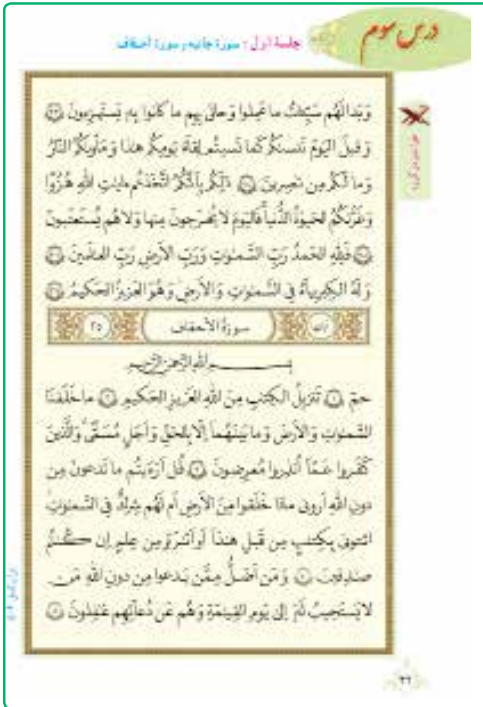 درس سوم
جلسهٔ اول: سورهٔ جاثیه و سورهٔ احقاف
وَبَدا لَهُم سَيِّئاتُ ما عَمِلوا وَحاقَ بِهِم ما كانوا بِه يَستَهزِءونَ ٣٣
وَقيلَ اليَومَ نَنسىٰكُم كَما نَسيتُم لِقاءَ يَومِكُم هٰذا وَمَأوىٰكُمُ النّارُ
وَما لَكُم مِن ناصِرينَ ٣٤ ذٰلِكُم بِاَنَّكُمُ اتَّخَذتُم ءايٰتِ اللهِ هُزُوًا
وَغَرَّتكُمُ الحَيوٰةُ الدُّنيا فَاليَومَ لا يُخرَجونَ مِنها وَلا هُم يُستَعتَبونَ
٣٥ فَلِلّٰهِ الحَمدُ رَبِّ السَّمٰوٰتِ وَرَبِّ الاَرضِ رَبِّ العالَمينَ ٣٦
وَلَهُ الكِبرِياءُ فِي السَّمٰوٰتِ وَالاَرضِ وَهُوَ العَزيزُ الحَكيمُ ٣٧
سورة الأحقاف ٣٥
بِسمِ اللهِ الرَّحمٰنِ الرَّحيمِ
حم ١ تَنزيلُ الكِتٰبِ مِنَ اللهِ العَزيزِ الحَكيمِ ٢ ما خَلَقنَا
السَّمٰوٰتِ وَالاَرضَ وَما بَينَهُما اِلّا بِالحَقِّ وَاَجَلٍ مُسَمًّى وَالَّذينَ
كَفَروا عَمّا اُنذِروا مُعرِضونَ ٣ قُل اَرَءَيتُم ما تَدعونَ مِن
دونِ اللهِ اَروني ماذا خَلَقوا مِنَ الاَرضِ اَم لَهُم شِركٌ فِي السَّمٰوٰتِ
ائتوني بِكِتٰبٍ مِن قَبلِ هٰذا اَو اَثٰرَةٍ مِن عِلمٍ اِن كُنتُم
صٰدِقينَ ٤ وَمَن اَضَلُّ مِمَّن يَدعوا مِن دونِ اللهِ مَن
لا يَستَجيبُ لَهُ اِلىٰ يَومِ القِيٰمَةِ وَهُم عَن دُعائِهِم غافِلونَ ٥